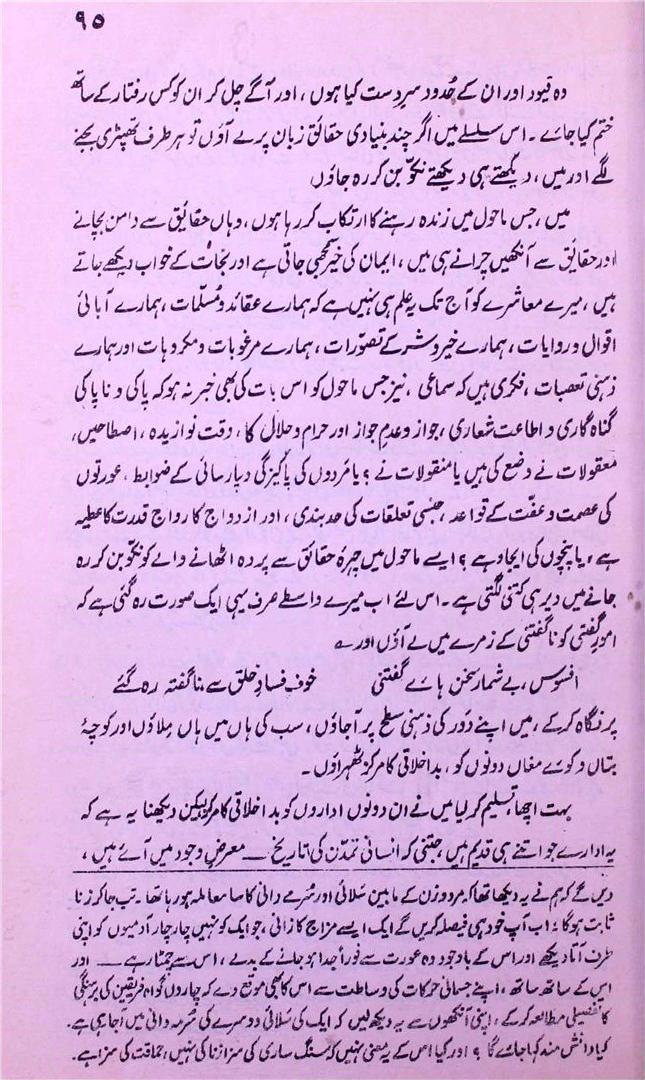 ۹۵
وہ قیود اور ان کے حُدود سرِدست کیا ہوں، اور آگے چل کر ان کو کس رفتار کے ساتھ
ختم کیا جائے۔ اس سلسلے میں اگر چند بنیادی حقائق زبان پر لے آؤں تو ہر طرف تھپڑی بجنے
لگے اور میں، دیکھتے ہی دیکھتے نکّو بن کر رہ جاؤں
میں، جس ماحول میں زندہ رہنے کا ارتکاب کر رہا ہوں، وہاں حقایق سے دامن بچانے
اور حقایق سے آنکھیں چرانے ہی میں، ایمان کی خیر سمجھی جاتی ہے اور نجات کے خواب دیکھے جاتے
ہیں، میرے معاشرے کو آج تک یہ علم ہی نہیں ہے کہ ہمارے عقائد و مُسلّمات، ہمارے آبائی
اقوال و روایات، ہمارے خیر و شر کے تصوّرات، ہمارے مرغوبات و مکروہات اور ہمارے
ذہنی تعصبات، فکری ہیں کہ سماعی، نیز جس ماحول کو اس بات کی بھی خبر نہ ہو کہ پاکی و ناپاکی
گناہ گاری و اطاعت شعاری، جواز و عدمِ جواز اور حرام و حلال کا، دقت نوازیدہ، اصطلاحیں،
معقولات نے وضع کی ہیں یا منقولات نے؟ یا مَردوں کی پاکیزگی و پارسائی کے ضوابط، عورتوں
کی عصمت و عفّت کے قواعد، جنسی تعلقات کی حد بندی، اور ازدواج کا رواج قدرت کا عطیہ
ہے، یا پنچوں کی ایجاد ہے؟ ایسے ماحول میں چہرۂ حقائق سے پردہ اٹھانے والے کو نکّو بن کر رہ
جانے میں دیر ہی کتنی لگتی ہے۔ اس لئے اب میرے واسطے صرف یہی ایک صورت رہ گئی ہے کہ
امورِ گفتنی کو ناگفتنی کے زمرے میں لے آؤں اور ؎
افسوس، بے شمار سخن ہائے گفتنی خوفِ فسادِ خلق سے ناگفتہ رہ گئے
پر نگاہ کر کے، میں اپنے دور کی ذہنی سطح پر آ جاؤں، سب کی ہاں میں ہاں مِلاؤں اور کوچۂ
بتاں و کوئے مغاں دونوں کو، بد اخلاقی کا مرکز ٹھہراؤں۔
بہت اچھا، تسلیم کر لیا میں نے ان دونوں اداروں کو بد اخلاقی کا مرکز لیکن دیکھنا یہ ہے کہ
یہ ادارے جو اتنے ہی قدیم ہیں، جتنی کہ انسانی تمدّن کی تاریخ — معرضِ وجود میں آئے ہیں،
دیں گے کہ ہم نے یہ دیکھا تھا کہ مرد و زن کے مابین سُلائی اور سُرمے دانی کا سا معاملہ ہو رہا تھا۔ تب جا کر زنا
ثابت ہوگا؛ اب آپ خود ہی فیصلہ کریں گے ایک ایسے مزاج کا زانی، جو ایک کو نہیں چار چار آدمیوں کو اپنی
طرف آتا دیکھے اور اس کے باوجود وہ عورت سے فوراً جدا ہو جانے کے بدلے، اس سے چمٹا رہے — اور
اس کے ساتھ ساتھ، اپنے جسمانی حرکات کی وساطت سے اس کا بھی موقع دے کہ چاروں گواہ فریقین کی برہنگی
کا تفصیلی مطالعہ کر کے، اپنی آنکھوں سے یہ دیکھ لیں کہ ایک کی سُلائی دوسرے کی سُرمہ دانی میں آجا رہی ہے۔
کیا دانش مند کہا جائے گا؟ اور کیا اس کے یہ معنی نہیں کہ سنگ ساری کی سزا زنا کی نہیں، حماقت کی سزا ہے۔